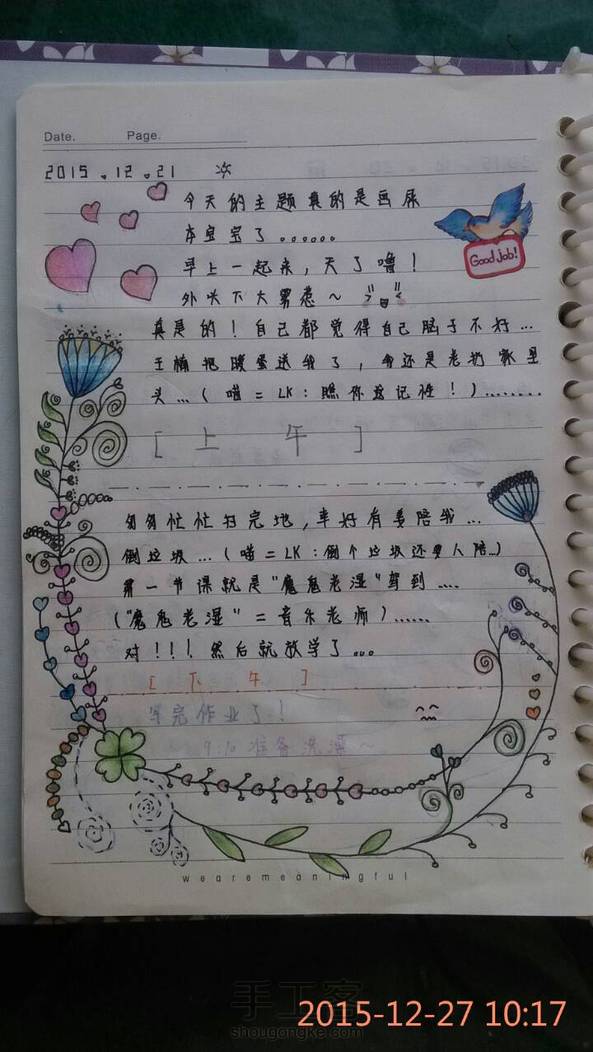 Date. Page.
2015.12.21
今天的主题真的是画尿
本宝宝了。。。。。。
早上一起来,天了噜!
外头下大雾惹~
真是的!自己都觉得自己脑子不好...
王楠把暖蛋送我了,令还是老扔家里
头...(喵=LK:瞧你这记性!)........
[上 午]
匆匆忙忙扫完地,幸好有姜陪我...
倒垃圾...(喵=LK:倒个垃圾还要人陪..)
第一节课就是"魔鬼老湿"驾到....
("魔鬼老湿"=音乐老师)......
对!!!然后就放学了...
[下 午]
写完作业了!
9:10准备洗澡~
Good Job!
wearemeaningful
手工客
shougongke.com
2015-12-27 10:17